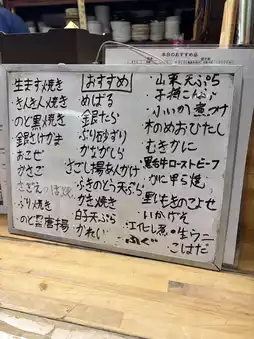 本日のおすすめ品
おすすめ
生ます焼き
きんきん焼き
のど黒焼き
銀さけかま
あこぜ
かさご
さざえつぼ焼
ぶり焼き
のど黒唐揚
めばる
銀たら
ぶり砂ずり
かながしら
さごし揚あんかけ
ふきのとう天ぷら
かき焼き
白子天ぷら
かれい
山菜天ぷら
子持こんぶ
小いか煮つけ
木のめおひたし
むきかに
黒毛牛ローストビーフ
かに甲ら焼
里もきのこよせ
いかげそ
・生ウニ
ふぐ
こはだ